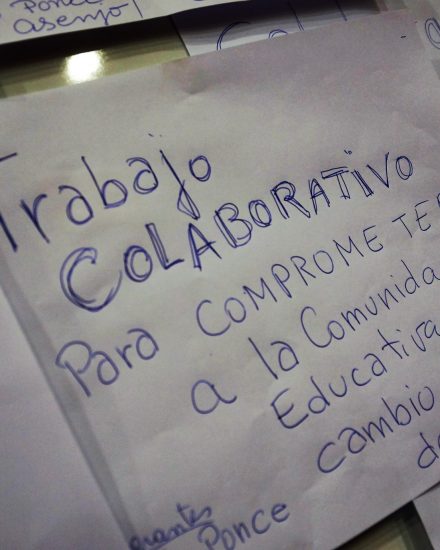 Ponce
asenjo
Trabajo
COLABORATIVO
Para COMPROMETER
a la Comunida
Educativa
cambio
de
Ponce